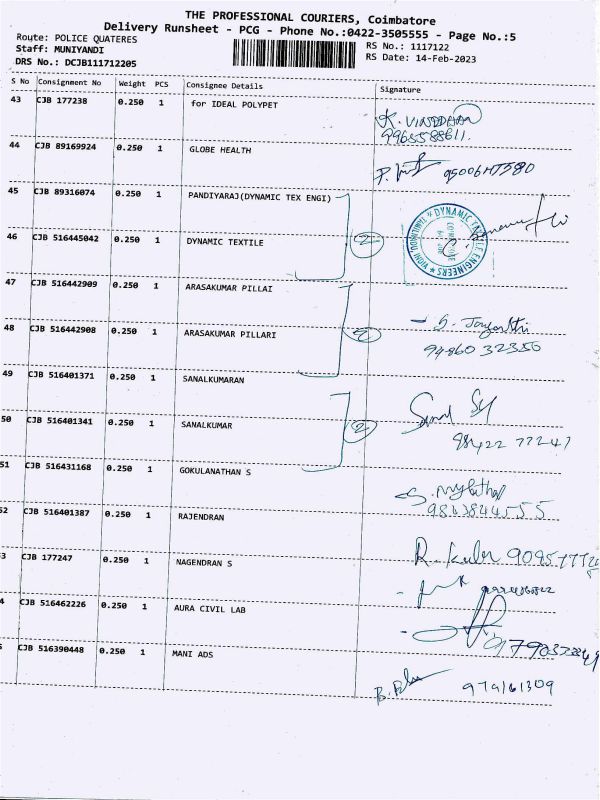 THE PROFESSIONAL COURIERS, Coimbatore
Delivery Runsheet - PCG - Phone No.:0422-3505555 - Page No.:5
Route: POLICE QUATERES
RS No.: 1117122
Staff: MUNIYANDI
RS Date: 14-Feb-2023
DRS No.: DCJB111712205
S No Consignment No Weight PCS Consignee Details Signature
43 CJB 177238 0.250 1 for IDEAL POLYPET
9965588611.
44 CJB 89169924 0.250 1 GLOBE HEALTH
45 CJB 89316074 0.250 1 PANDIYARAJ(DYNAMIC TEX ENGI)
46 CJB 516445042 0.250 1 DYNAMIC TEXTILE 2
47 CJB 516442909 0.250 1 ARASAKUMAR PILLAI
48 CJB 516442908 0.250 1 ARASAKUMAR PILLARI 2
94860 32350
49 CJB 516401371 0.250 1 SANALKUMARAN
50 CJB 516401341 0.250 1 SANALKUMAR 2
98422 77247
51 CJB 516431168 0.250 1 GOKULANATHAN S
52 CJB 516401387 0.250 1 RAJENDRAN
3 CJB 177247 0.250 1 NAGENDRAN S
4 CJB 516462226 0.250 1 AURA CIVIL LAB
CJB 516390448 0.250 1 MANI ADS